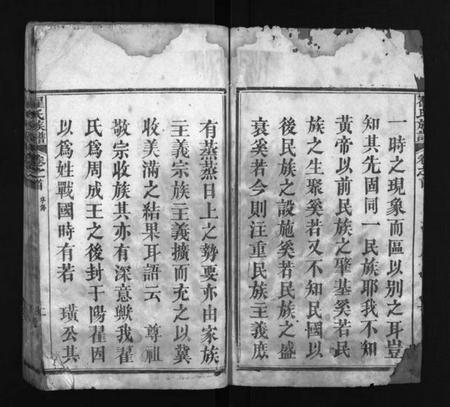 一時之現象而區以別之耳豈
知其先固同一民族耶我不知
黃帝以前民族之肇基奚若民
族之生聚奚若又不知民國以
後民族之設施奚若民族之盛
衰奚若今則注重民族主義庶
有蒸蒸日上之勢要亦由家族
主義宗族主義擴而充之以冀
收美滿之結果耳語云 尊祖
敬宗收族其亦有深意歟我翟
氏爲周成王之後封于陽翟因
以爲姓戰國時有若 璜公其
翟氏族譜 卷之首